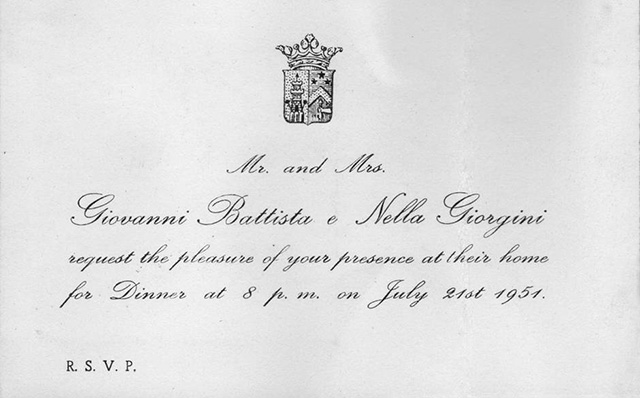 Mr. and Mrs.
Giovanni Battista e Nella Giorgini
request the pleasure of your presence at their home
for Dinner at 8 p. m. on July 21st 1951.
R. S. V. P.